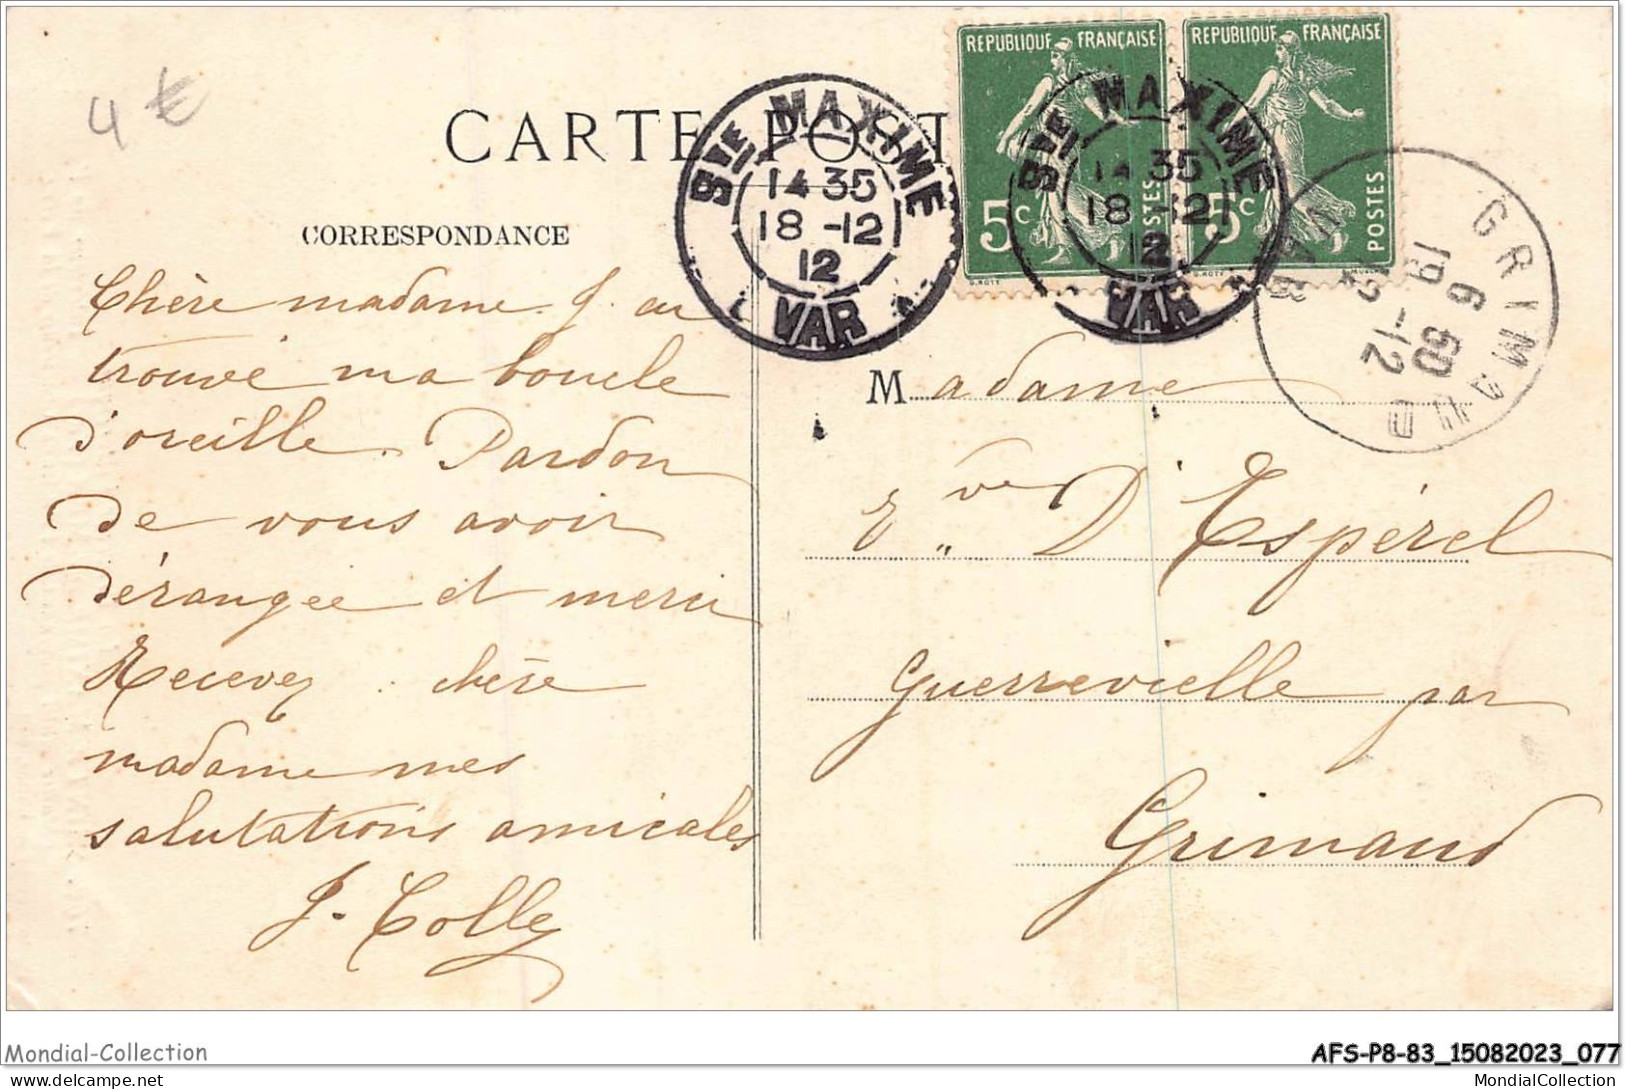 4 €
CARTE POST
CORRESPONDANCE
REPUBLIQUE FRANÇAISE
5c
POSTES
REPUBLIQUE FRANÇAISE
5c
POSTES
Ste MAXIME
14 35
18 -12
12
VAR
Ste MAXIME
14 35
18 -12
12
VAR
GRIMAUD
6 50
19 -12
12
VAR
Chère madame. J. ai
trouvé ma boucle
d'oreille. Pardon
de vous avoir
dérangée et merci
Recevez chère
madame mes
salutations amicales
J. Colle
Madame
Vve D'Espérel
Guerrevielle par
Grimaud
Mondial-Collection
AFS-P8-83_15082023_077
delcampe.net
MondialCollection